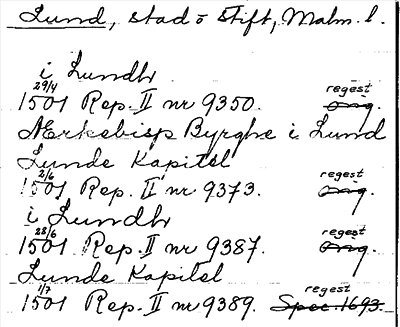 Lund, stad o stift, Malm. l.
i Lundh
29/4 regest
1501 Rep. II nr 9350. orig.
Ærkebisp Byrghe i Lund
Lunde Kapitel
2/6 regest
1501 Rep. II nr 9373. orig.
i Lundh
28/6 regest
1501 Rep. II nr 9387. orig.
Lunde Kapitel
1/7 regest
1501 Rep. II nr 9389. Spec. 1693.